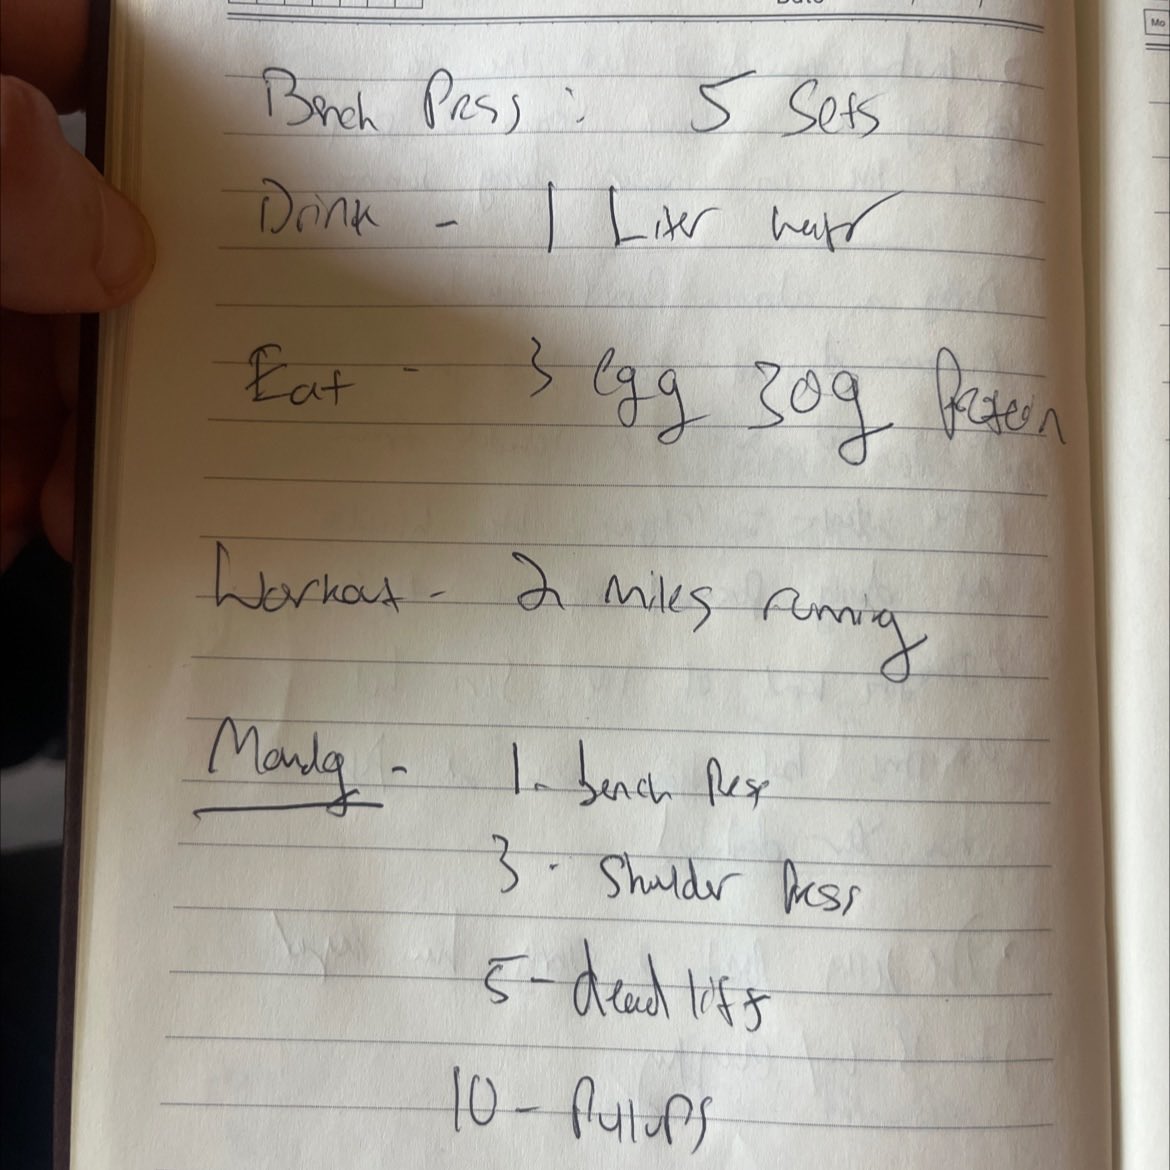 Date
Mo
Bench Press : 5 Sets
Drink - 1 Liter water
Eat - 3 egg 30g Protein
Workout - 2 miles running
Monday - 1. bench Press
3 - Shoulder Press
5 - dead lift
10 - Pullups